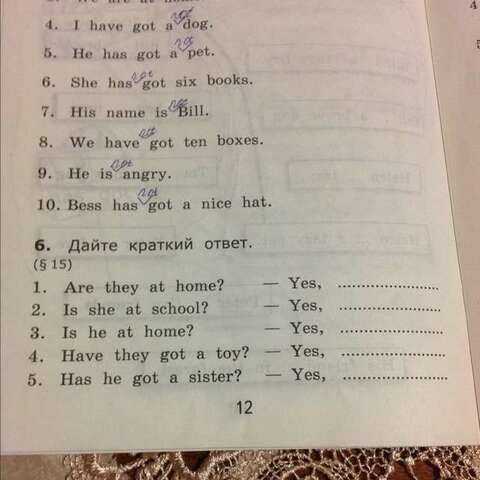 4. I have got a dog.
5. He has got a pet.
6. She has got six books.
7. His name is Bill.
8. We have got ten boxes.
9. He is angry.
10. Bess has got a nice hat.
6. Дайте краткий ответ.
(§ 15)
1. Are they at home? — Yes, ........................
2. Is she at school? — Yes, ........................
3. Is he at home? — Yes, ........................
4. Have they got a toy? — Yes, ........................
5. Has he got a sister? — Yes, ........................
12